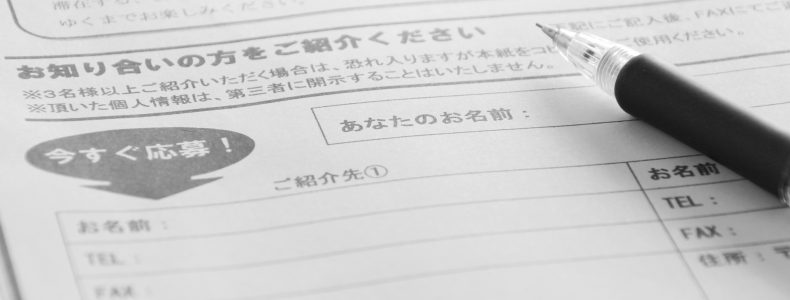 滞在する、
ゆくまでお楽しみください。
お知り合いの方をご紹介ください
下記にご記入後、FAXにて
※3名様以上ご紹介いただく場合は、恐れ入りますが本紙をコピ ご使用ください。
※頂いた個人情報は、第三者に開示することはいたしません。
あなたのお名前：
今すぐ応募！
ご紹介先①
お名前：
TEL：
FAX：
お名前
TEL：
FAX：
住所：〒